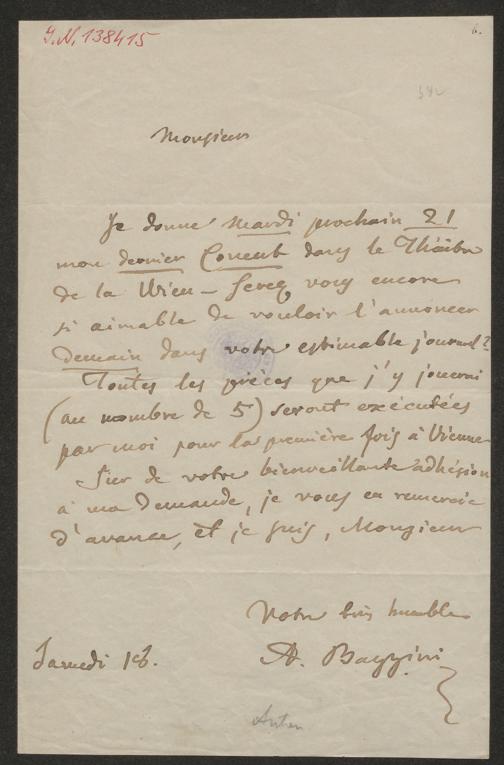 J.N. 138415
6.
Monsieur
Je donne Mardi prochain 21
mon dernier Concert dans le Théâtre
de la Wien – Serez vous encore
si aimable de vouloir l'annoncer
Demain dans votre estimable journal?
Toutes les pièces que j'y jouerai
(au nombre de 5) seront exécutées
par moi pour la première fois à Vienne
Sur de votre bienveillante adhésion
à ma Demande, je vous en remercie
d'avance, et je suis, Monsieur
Votre très humble
Samedi 18.
A. Bazzini